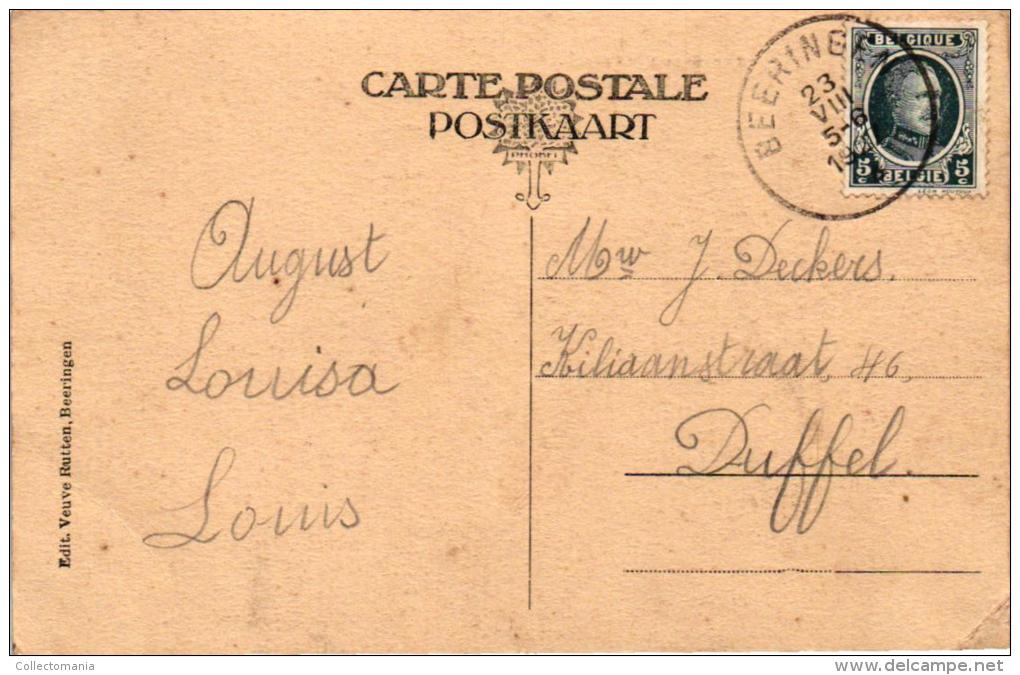 CARTE POSTALE
POSTKAART
PHOBEL
BEERINGEN
23
VIII
5-6
BELGIQUE
5c 5c
BELGIË
August
Louisa
Louis
Mw J. Deckers.
Kiliaanstraat, 46,
Duffel.
Edit. Veuve Rutten, Beeringen
Collectomania
delcampe.net